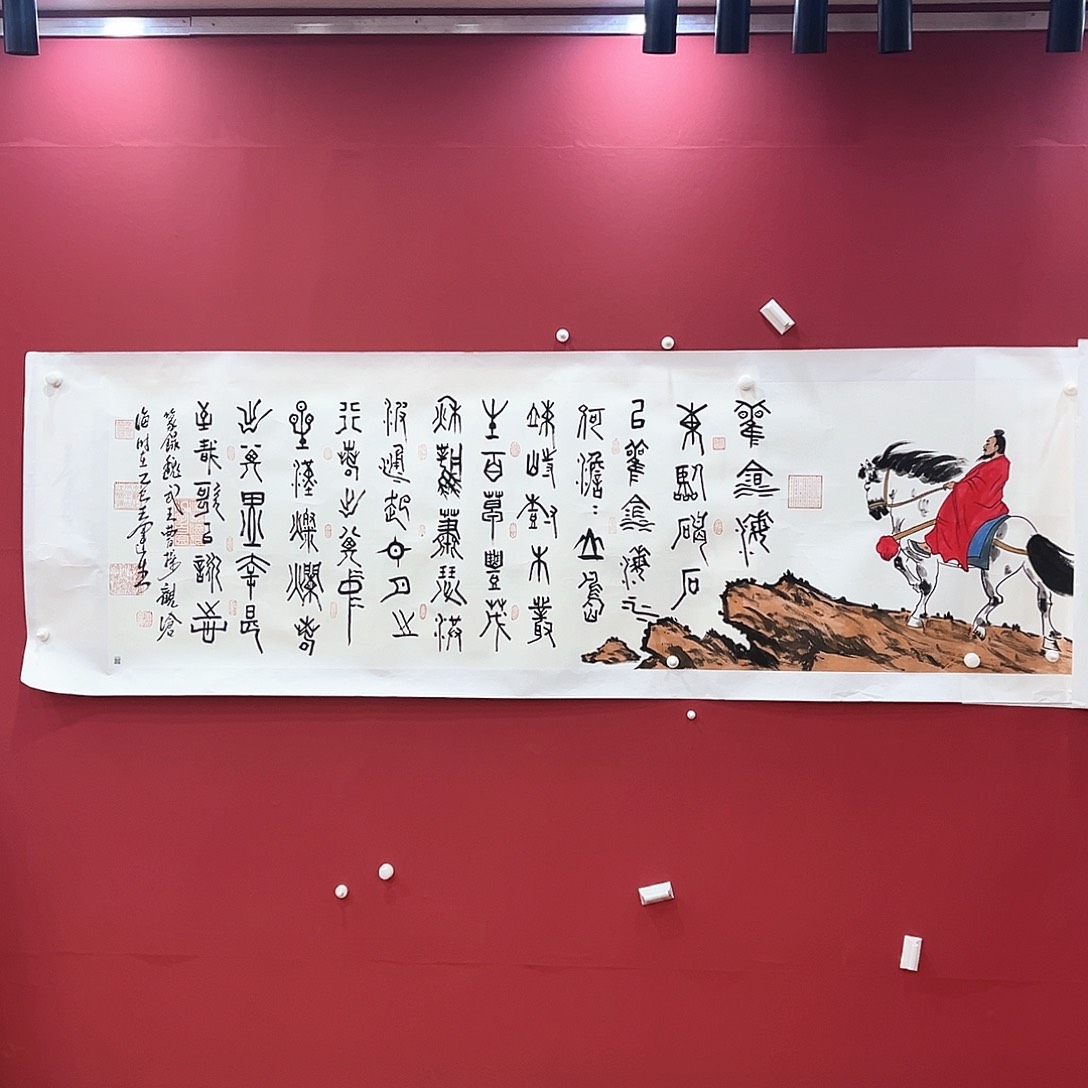 觀滄海
東臨碣石
以觀滄海水
何澹澹山島
竦峙樹木叢
生百草豐茂
秋風蕭瑟洪
波涌起日月之
行若出其中
星漢燦爛若
出其里幸甚
至哉歌以詠志
篆錄魏武王曹操觀滄
海时在乙巳